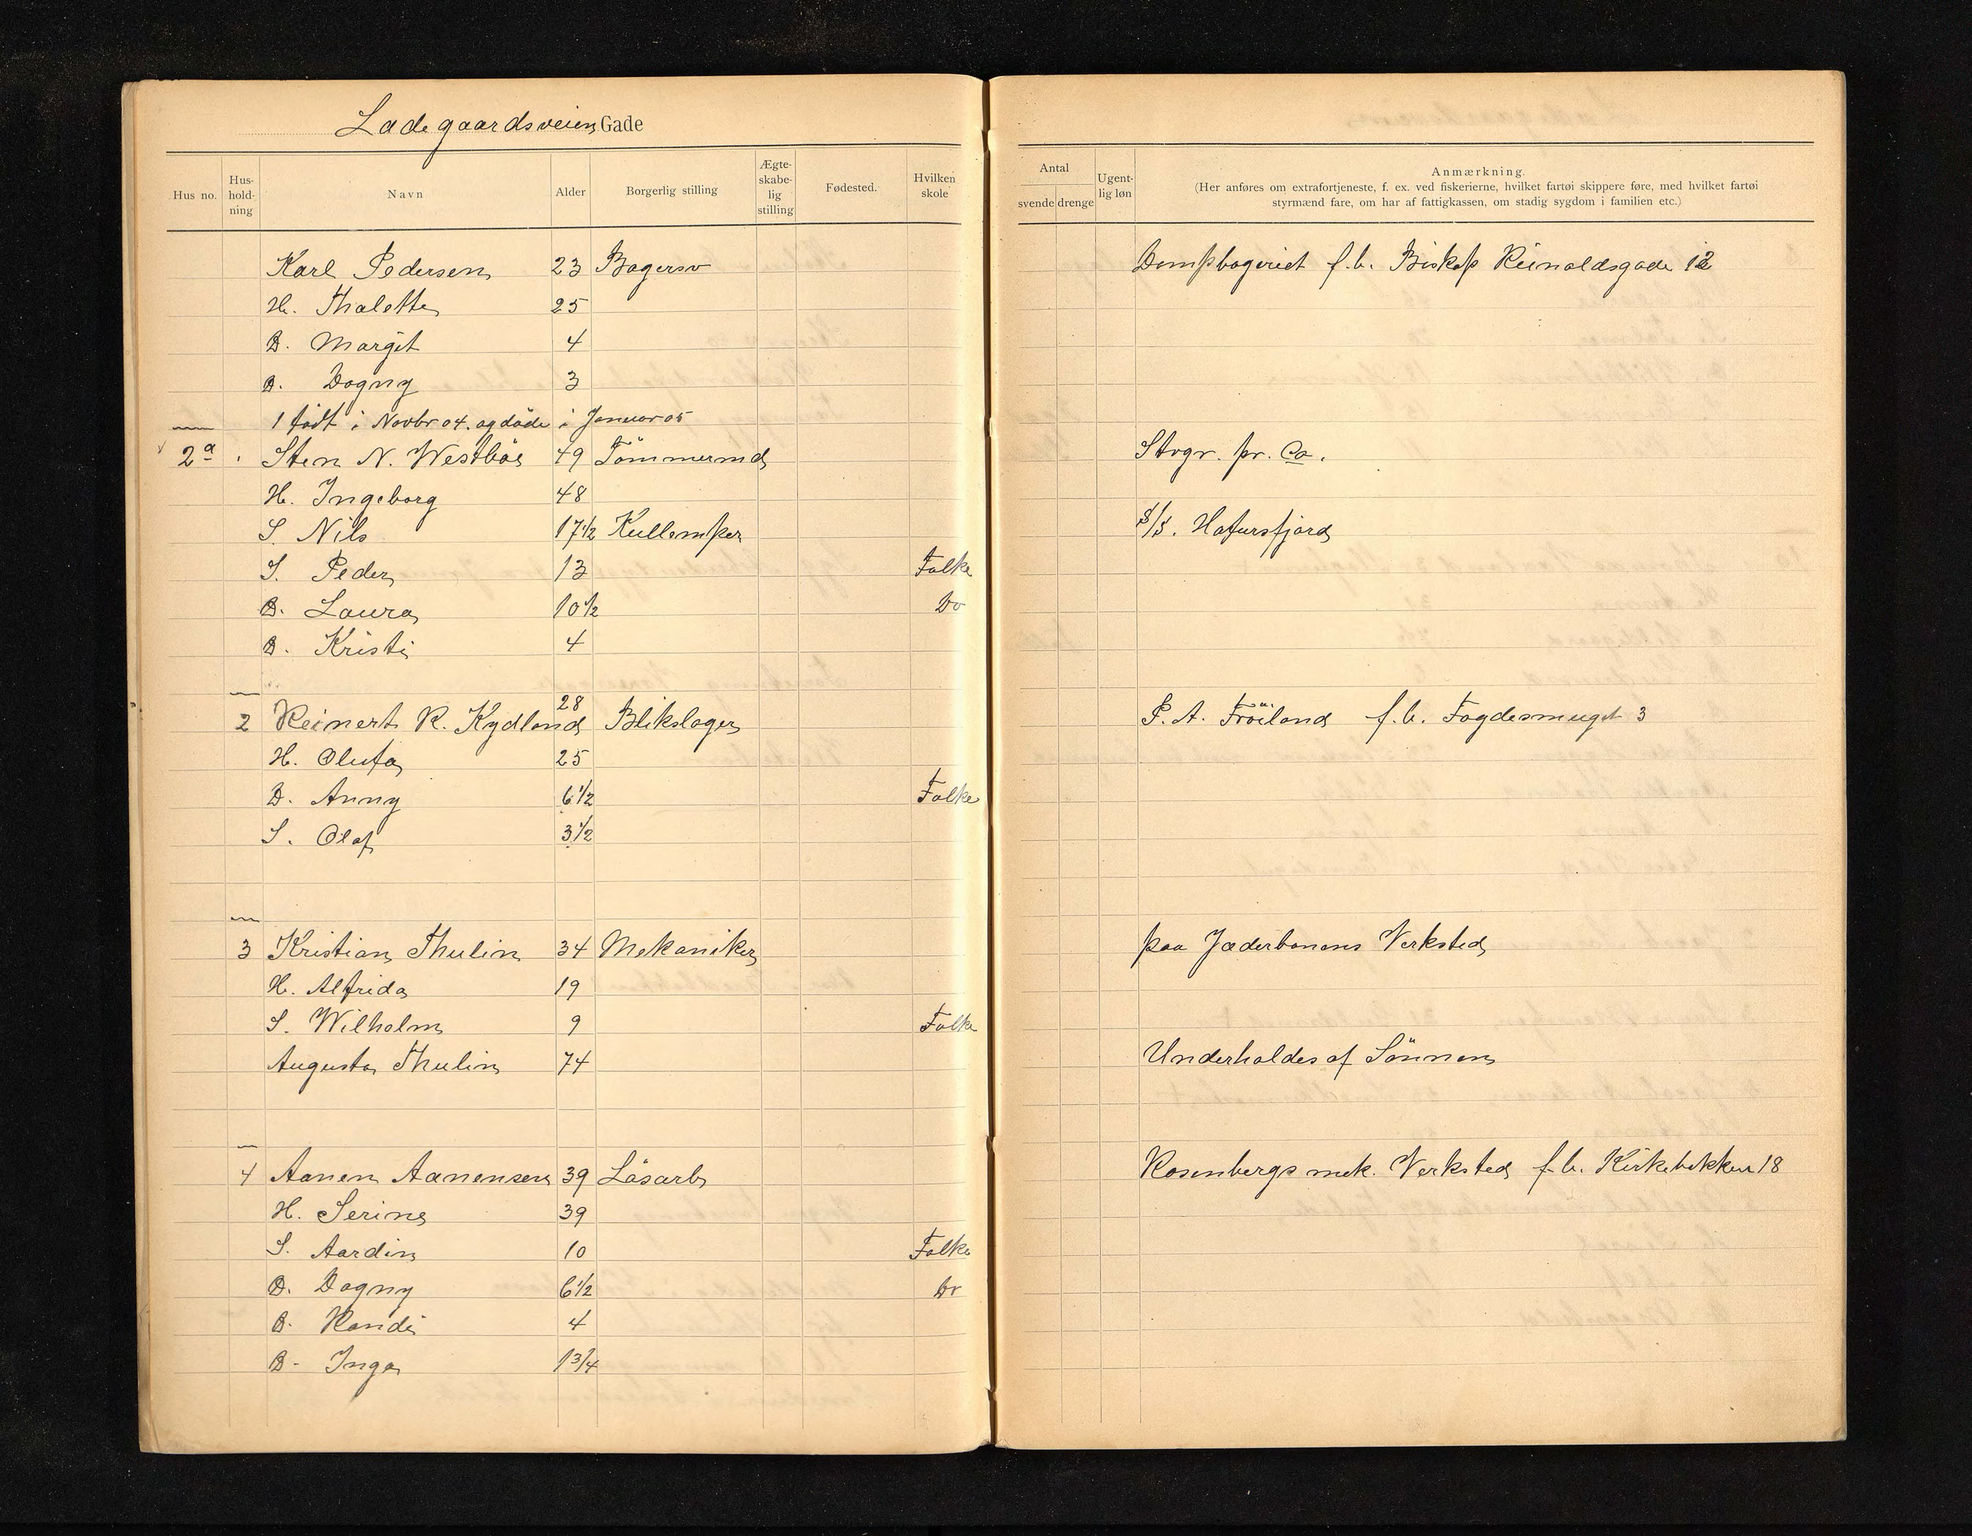 Ladegaardsveien Gade
Hus no. Hus-hold-ning Navn Alder Borgerlig stilling Ægte-skabe-lig stilling Fødested. Hvilken skole Antal svende drenge Ugent-lig løn Anmærkning.
(Her anføres om extrafortjeneste, f. ex. ved fiskerierne, hvilket fartøi skippere føre, med hvilket fartøi
styrmænd fare, om har af fattigkassen, om stadig sygdom i familien etc.)
Karl Pedersen 23 Bagersv Dampbageriet f.b. Biskop Reinaldsgade 12
H. Thalette 25
D. Margit 4
D. Dagny 3
1 født i Novbr 04. og døde i Januar 05
2a . Sten N. Westbøe 49 Tömmermd Stvgr. pr. Co.
H. Ingeborg 48
S. Nils 17 1/2 Kullemper S/S. Hafursfjord
S. Peder 13 Folke
D. Laura 10 1/2 Do
D. Kristi 4
2 Reinert R. Kydland 28 Blikslager P. A. Fröiland f.b. Fogdesmuget 3
H. Olufa 25
D. Anny 6 1/2 Folke
S. Olaf 3 1/2
3 Kristian Thulin 34 Mekaniker paa Jæderbanens Verksted
H. Alfrida 19
S. Wilhelm 9 Folke
Augusta Thulin 74 Underholdes af Sönnen
4 Aanen Aanensen 39 Lösarb Rosenbergs mek. Verksted f.b. Kirkebakken 18
H. Serine 39
S. Aardin 10 Folke
D. Dagny 6 1/2 Do
D. Randi 4
D. Inga 1 3/4